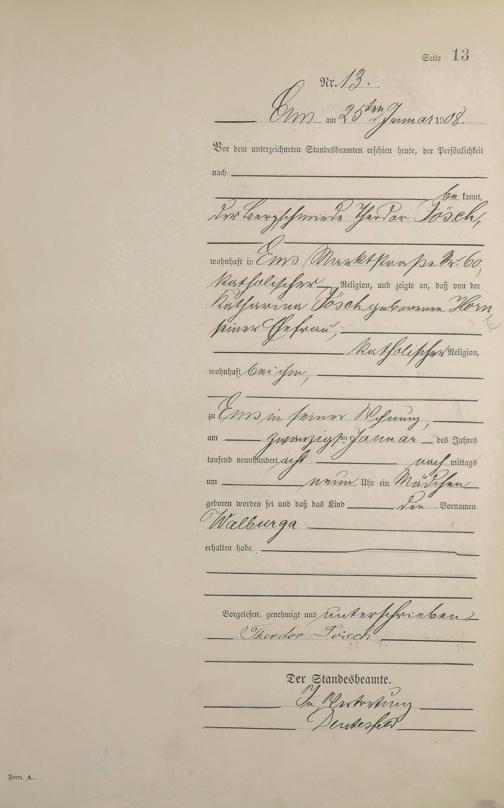 Seite 13
Nr. 13.
Ems am 25ten Januar 1908.
Vor dem unterzeichneten Standesbeamten erschien heute, der Persönlichkeit
nach
be kannt,
der Bergschmiede Theodor Jösch,
wohnhaft in Ems Marktstraße Nr. 60,
katholischer Religion, und zeigte an, daß von der
Katharina Jösch geborenen Horn,
seiner Ehefrau,
katholischer Religion,
wohnhaft bei ihm,
zu Ems in seiner Wohnung,
am zwanzigsten Januar des Jahres
tausend neunhundert acht nach mittags
um neun Uhr ein Mädchen
geboren worden sei und daß das Kind den Vornamen
Walburga
erhalten habe.
Vorgelesen, genehmigt und unterschrieben.
Theodor Jösch
Der Standesbeamte.
In Vertretung
Form. A.